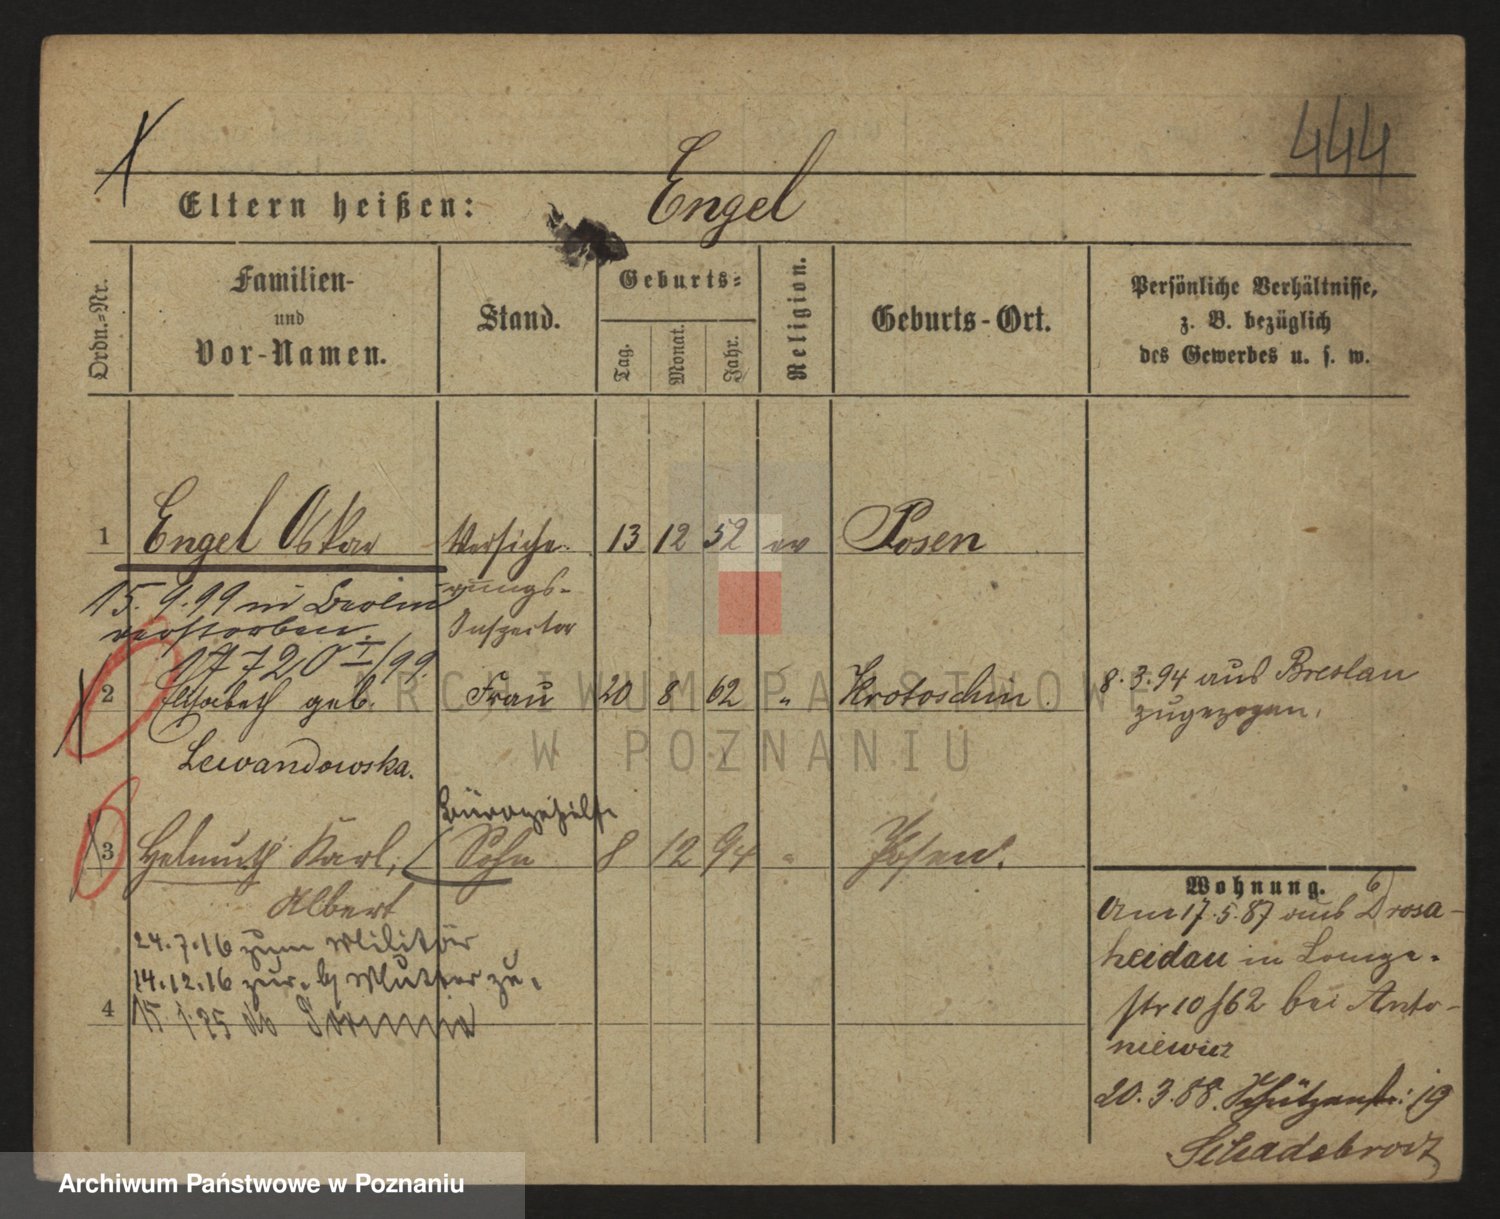 444
Eltern heißen: Engel
Ordn.-Nr.
Familien-
und
Vor-Namen.
Stand.
Geburts-
Tag.
Monat.
Jahr.
Religion.
Geburts-Ort.
Persönliche Verhältnisse,
z. B. bezüglich
des Gewerbes u. s. w.
1 Engel Oskar Versiche- 13 12 52 ev Posen
rungs-
Inspector
15.9.99 in Berlin
verstorben.
17720 I/99.
2 Elisabeth geb. Frau 20 8 62 " Krotoschin.
Lewandowska.
8.3.94 aus Breslau
zugezogen.
Bürogehilfe
3 Helmuth Karl, Sohn 8 12 94 " Posen.
Albert
24.7.16 zum Militär
14.12.16 zur. b/ Mutter zu.
4 15.
Wohnung.
Am 17.5.87 aus
heidau in
str 10 bei Anto-
niewicz
20.3.88. Schützenstr. 19
Schadebrodt
ARCHIWUM PAŃSTWOWE
W POZNANIU
Archiwum Państwowe w Poznaniu